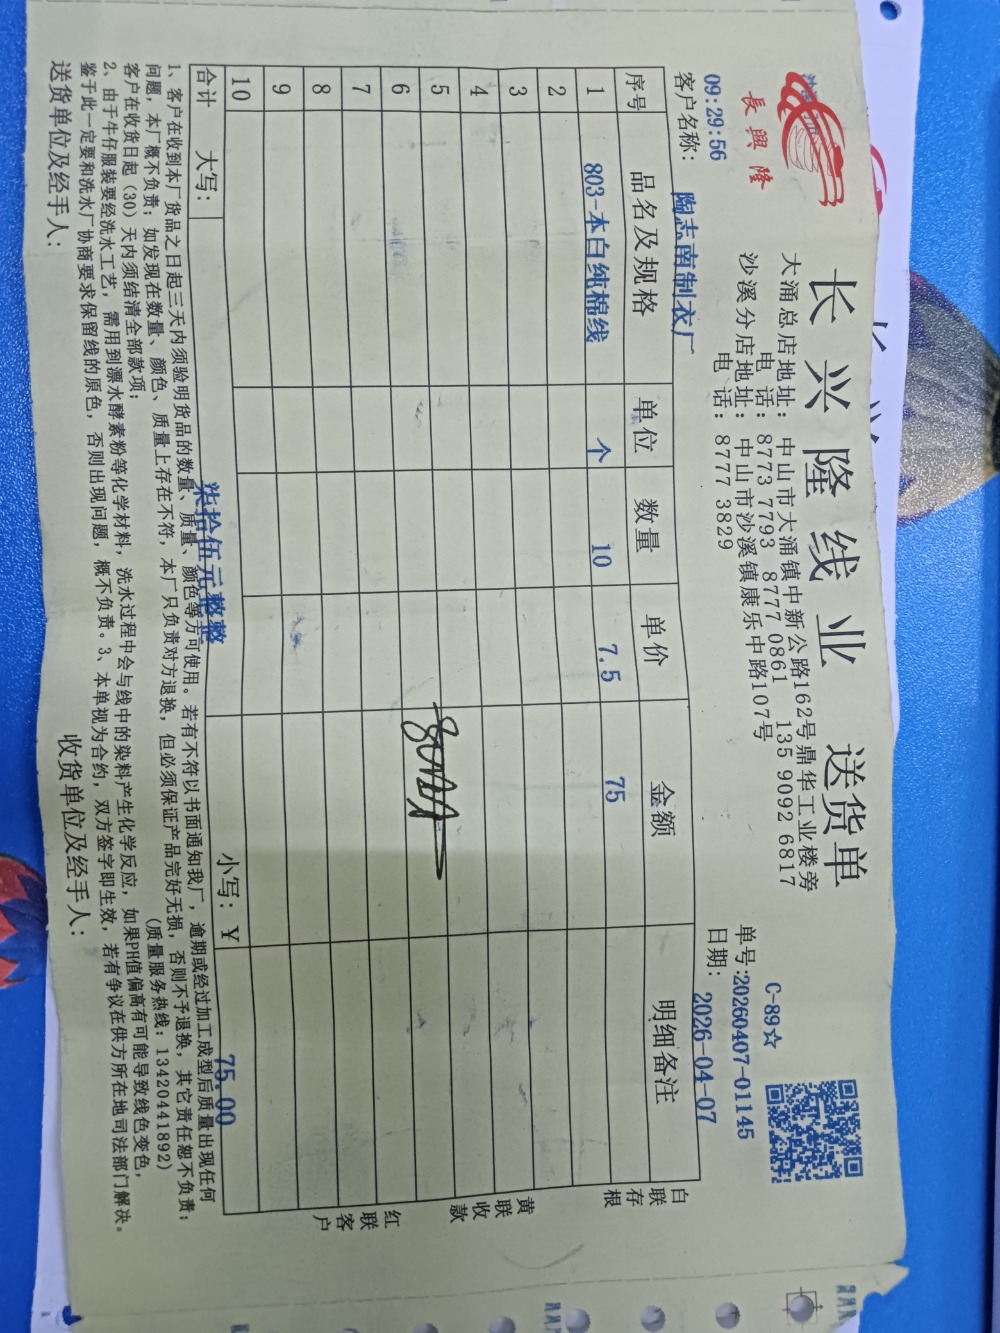 長興隆
长兴隆线业 送货单
C-89☆
大涌总店地址：中山市大涌镇中新公路162号鼎华工业楼旁
电 话：8773 7793 8777 0861 135 9092 6817
沙溪分店地址：中山市沙溪镇康乐中路107号
电 话：8777 3829
单号:20260407-01145
09:29:56
日期：2026-04-07
客户名称：陶志南制衣厂
序号 品名及规格 单位 数量 单价 金额 明细备注
1 803-本白纯棉线 个 10 7.5 75
2
3
4
5
6
7
8
9
10
合计 大写：柒拾伍元整整 小写：¥ 75.00
白联存根
黄联收款
红联客户
1、客户在收到本厂货品之日起三天内须验明货品的数量、质量、颜色等方可使用。若有不符以书面通知我厂，逾期或经过加工成型后质量出现任何
问题，本厂概不负责；如发现在数量、颜色、质量上存在不符，本厂只负责对方退换，但必须保证产品完好无损，否则不予退换，其它责任恕不负责；
客户在收货日起（30）天内须结清全部款项；
(质量服务热线：13420441892)
2、由于牛仔服装要经洗水工艺，需用到漂水酵素粉等化学材料，洗水过程中会与线中的染料产生化学反应，如果PH值偏高有可能导致线色变色，
鉴于此一定要和洗水厂协商要求保留线的原色，否则出现问题，概不负责。3、本单视为合约，双方签字即生效，若有争议在供方所在地司法部门解决。
送货单位及经手人： 收货单位及经手人：